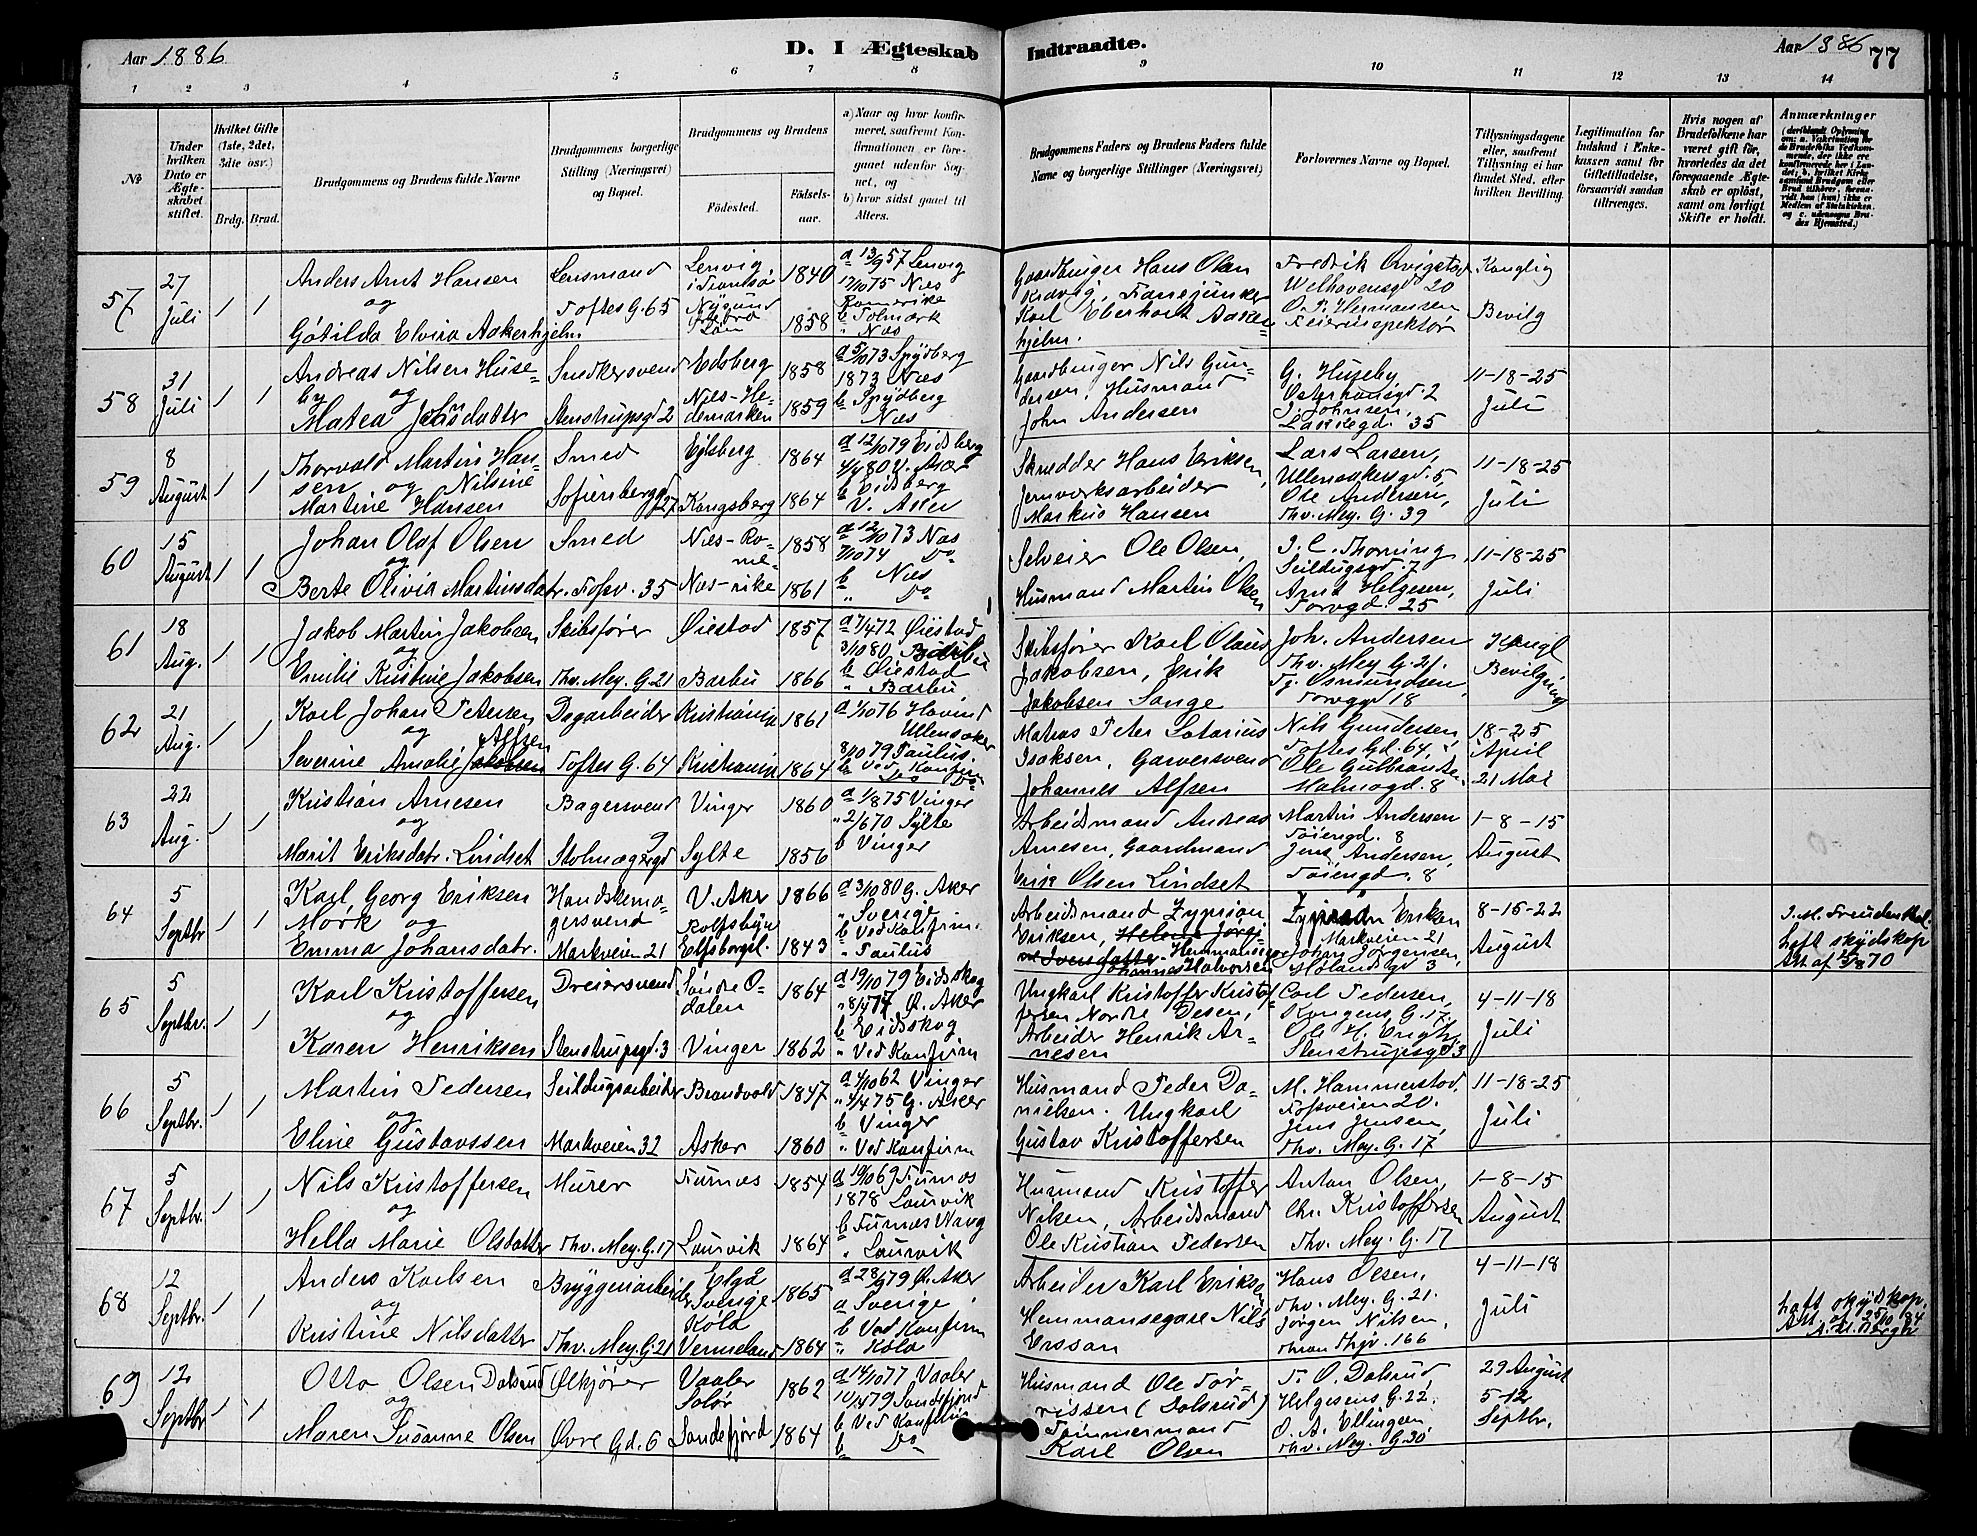 Aar 1886 D. I Ægteskab Indtraadte. Aar 1886 77
1 2 3 4 5 6 7 8 9 10 11 12 13 14
№
Under hvilken Dato er Ægteskabet stiftet.
Hvilket Gifte (1ste, 2det, 3die osv.)
Brdg. Brud.
Brudgommens og Brudens fulde Navne
Brudgommens borgerlige Stilling (Næringsvei) og Bopæl.
Brudgommens og Brudens
Födested. Födsels-aar.
a) Naar og hvor konfirmeret, saafremt Konfirmationen er foregaaet udenfor Sognet, og
b) hvor sidst gaaet til Alters.
Brudgommens Faders og Brudens Faders fulde Navne og borgerlige Stillinger (Næringsvei)
Forlovernes Navne og Bopæl.
Tillysningsdagene eller, saafremt Tillysning ei har fundet Sted, efter hvilken Bevilling.
Legitimation for Indskud i Enkekassen samt for Giftetilladelse, forsaavidt saadan tiltrænges.
Hvis nogen af Brudefolkene har været gift før, hvorledes da det foregaaende Ægteskab er oplöst, samt om lovligt Skifte er holdt.
Anmærkninger
57
27 Juli
1 1
Anders Arnt Hansen
og
Götilda Elvira Aakerhjelm
Lensmand
Toftes G. 65
Lenvig i Tromsø
1840
1858
a 13/9 57 Lenvig
17/10 75 Næs
Romerike
" Næs
Gaardbruger Hans Olsen
Karl Eberhart Aaker-
hjelm.
Fredrik Qvigstad
Welhavensgd 20
O. P. Hermansen
Feierinspektør
Konglig
Bevilg
58
31 Juli
1 1
Andreas Nilsen Huse-
by og
Matea Johnsdatter
Snedkersvend
Stenstrupsgd 2
Eidsberg
Næs-He-
demarken
1858
1859
a 5/10 73 Spydberg
1873 Næs
b Spydberg
Næs
Gaardbruger Nils Gun-
dersen, Husmand
John Andersen
G. Huseby
Osterhausgd 2
J. Johnsen,
Lakkegd. 35
11-18-25
Juli
59
8 August
1 1
Thorvald Martin Han-
sen og Nilsine
Martine Hansen
Smed
Sofienbergd 27
Eidsberg
Kongsberg
1864
1864
a 12/10 79 Eidsberg
4/4 80 V. Aker
b Eidsberg
V. Aker
Skrædder Hans Eriksen,
Jernverksarbeider
Markus Hansen
Lars Larsen,
Ullensakersgd. 5,
Ole Andersen,
Thv. Mey. G. 39
11-18-25
Juli
60
15 August
1 1
Johan Olaf Olsen
og
Berte Olivia Martinsdatr.
Smed
Fossv. 35
Næs-Ro-
me-
Næs-rike
1858
1861
a 12/10 73 Næs
7/10 74 Do
b Næs
" Do
Selveier Ole Olsen,
Husmand Martin Olsen
J. C. Thorning
Seildugsgd. 7
Arnt Helgesen,
Torvgd. 25
11-18-25
Juli
61
18 Aug.
1 1
Jakob Martin Jakobsen
og
Emilie Kristine Jakobsen
Skibsfører
Thv. Mey. G. 21
Øiestad
Barbu
1857
1866
a 7/4 72 Øiestad
3/10 80 Barbu
b Øiestad
" Barbu
Skibsfører Karl Olaus
Jakobsen, Erik
Jakobsen Sange
Joh. Andersen
Thv. Mey G. 21.
Tj. Osmundsen,
Torvgd 18
Kongl
Bevilgning
62
21 Aug.
1 1
Karl Johan Petersen
og Alfsen
Severine Amalie Jakobsen
Dagarbeider
Toftes G. 64
Kristiania
Kristiania
1861
1864
a 1/10 76 Hovind
Ullensaker
8/10 79 Paulus.
b Ved Konfirm
Do Do
Matias Peter Lotarius
Isaksen, Garversvend
Johannes Alfsen
Nils Gundersen,
Toftes Gd. 64,
Ole Gulbransen
Malmøgd. 8
18-25
April
21 Mai
63
22 Aug.
1 1
Kristian Arnesen
og
Marit Eriksdatr. Lindset
Bagersvend
Stolmagergd 9
Vinger
Sylte
1860
1856
a 1/8 75 Vinger
" 2/6 70 Sylte
b Vinger
Arbeidsmand Andreas
Arnesen, Gaardmand
Erik Olsen Lindset
Martin Andersen
Tøiengd. 8
Jens Andersen,
Tøiengd. 8
1-8-15
August
64
5 Septbr
1 1
Karl Georg Eriksen
Mørk og
Emma Johansdatr.
Handskema-
gersvend
Markveien 21
V. Aker
Rolfsbyn
Elfsborgsl.
1866
1843
a 3/10 80 G. Aker
" Sverige
b Ved Konfirm.
" Paulus
Arbeidsmand Zyprian
Eriksen, Helene Jørgi-
ne Iversdatter Hemmansegare
Johannes Halvorsen
Zyprian Eriksen
Markveien 21
Johan Jørgensen,
Mølandsgd 3
8-15-22
August
J. M. Freudenthal.
haft skydskop
Att af 12/8 70
65
5 Septbr.
1 1
Karl Kristoffersen
og
Karen Henriksen
Dreiersvend
Stenstrupsgd. 3
Søndre O-
dalen
Vinger
1864
1862
a 19/10 79 Eidskog
" 8/4 77 Ø. Aker
b Eidskog
" Ved Konfirm
Ungkarl Kristoffer Kristof-
fersen Nordre Desen,
Arbeider Henrik Ar-
nesen
Carl Pedersen,
Kongens G. 17.
Ole H. Engh,
Stenstrupsgd 3
4-11-18
Juli
66
5 Septbr.
1 1
Martin Pedersen
og
Eline Gustavssen
Seildugsarbeider
Markveien 32
Brandvold
Asker
1847
1860
a 4/10 62 Vinger
" 4/4 75 G. Aker
b Vinger
" Ved Konfirm
Husmand Peder Da-
nielsen. Ungkarl
Gustav Kristoffersen
M. Hammerstad.
Fossveien 20.
Jens Jensen,
Thv. Mey. G. 17
11-18-25
Juli
67
5 Septbr.
1 1
Nils Kristoffersen
og
Hella Marie Olsdatter
Murer
Thv. Mey. G. 17
Furnæs
Laurvik
1854
1864
a 19/10 69 Furnæs
1878 Laurvik
b Furnæs Vang
" Laurvik
Husmand Kristoffer
Nilsen, Arbeidsmand
Ole Kristian Pedersen
Anton Olsen,
Chr. Kristoffersen
Thv. Mey. G. 17
1-8-15
August
68
12 Septbr.
1 1
Anders Karlsen
og
Kristine Nilsdatter
Bryggeriarbeider
Thv. Mey. G. 21
Elgå
Sverige
Köla
Vermeland
1865
1864
a 28/9 79 Ø. Aker
a Sverige
b Ved Konfirm
" Köla
Arbeider Karl Eriksen
Hemmansegare Nils
Ersson
Hans Olsen.
Thv. Mey. G. 21.
Jørgen Nilsen,
Thron Thjv. 166
4-11-18
Juli
haft skydskop.
Att. af 25/10 84
A. M. Bergh
69
12 Septbr
1 1
Otto Olsen Dalsrud
og
Maren Susanne Olsen
Ølkjører
Øvre Gd. 6
Vaaler
Solør
Sandefjord
1862
1864
a 14/10 77 Vaaler
10/4 79 Sandefjord
b Ved Konfirm
b Do
Husmand Ole Tor-
rissen (Dalsrud)
Tømmermand
Karl Olsen
T. O. Dalsrud
Helgesens G. 22.
O. A. Ellingsen
Thv. Mey. G. 20
29 August
5-12
Septbr.